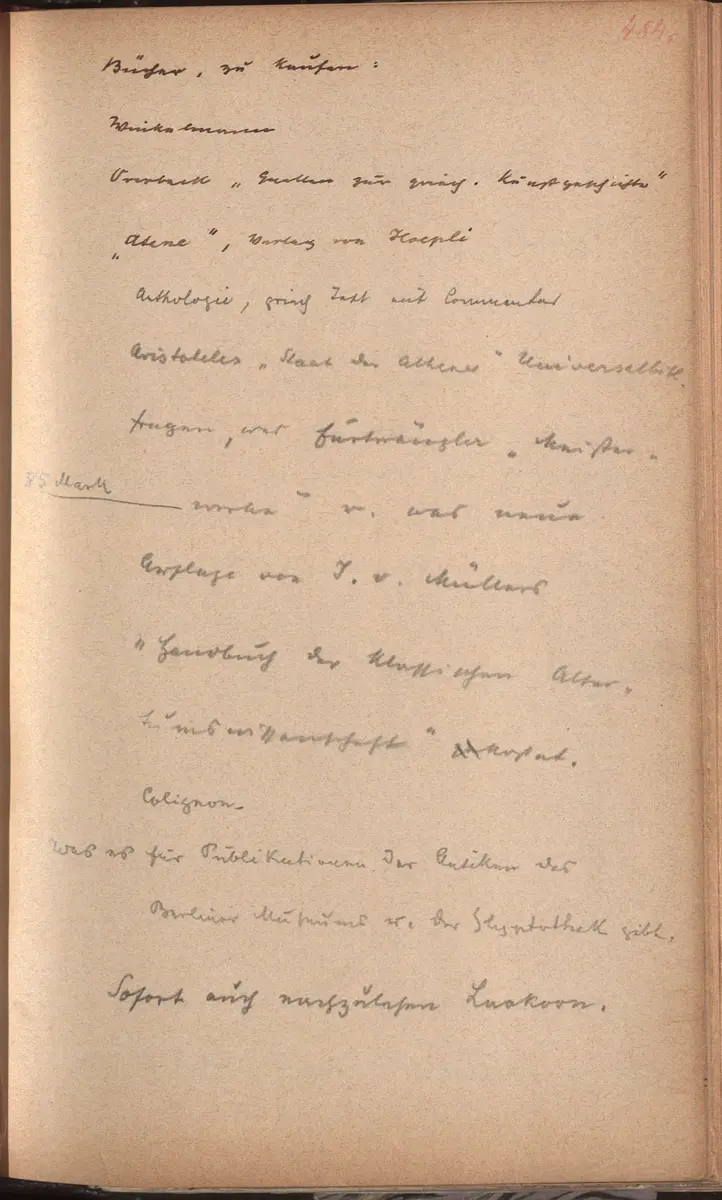 484.
Bücher, zu kaufen:
Winkelmann
Overbeck „Quellen zur griech. Kunstgeschichte"
„Atene", Verlag von Hoepli
Anthologie, griech Text mit Commentar
Aristoteles „Staat der Athener" Universalbibl.
fragen, was Furtwängler „Meister-
85 Mark
werke" u. was neue
Auflage von I. v. Müllers
"Handbuch der klassischen Alter-
tumswissenschaft" kostet.
Colignon
Was es für Publikationen der Antiken des
Berliner Museums u. der Glyptothek gibt.
Sofort auch nachzulesen Laokoon.